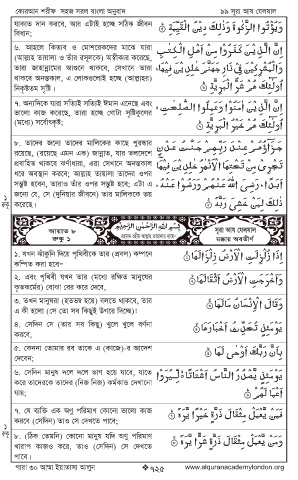 কোরআন শরীফ সহজ সরল বাংলা অনুবাদ
৯৯ সূরা আয যেলযাল
যাকাত দান করবে, আর এটাই হচ্ছে সঠিক জীবন
বিধান;
وَيُؤْتُوا الزَّكٰوةَ وَذٰلِكَ دِيْنُ الْقَيِّمَةِ ۞
৬. আহলে কিতাব ও মোশরেকদের মাঝে যারা
(আল্লাহ তায়ালা ও তাঁর রসূলকে) অস্বীকার করেছে,
তারা জাহান্নামের আগুনে থাকবে, সেখানে তারা
থাকবে অনন্তকাল, এ লোকগুলোই হচ্ছে (আল্লাহর)
নিকৃষ্টতম সৃষ্টি ।
اِنَّ الَّذِيْنَ كَفَرُوْا مِنْ اَهْلِ الْكِتٰبِ
وَالْمُشْرِكِيْنَ فِيْ نَارِ جَهَنَّمَ خٰلِدِيْنَ فِيْهَا
اُولٰٓئِكَ هُمْ شَرُّ الْبَرِيَّةِ ۞
৭. অন্যদিকে যারা সত্যি সত্যিই ঈমান এনেছে এবং
ভালো কাজ করেছে, তারা হচ্ছে গোটা সৃষ্টিকুলের
(মধ্যে) সর্বোৎকৃষ্ট;
اِنَّ الَّذِيْنَ اٰمَنُوْا وَعَمِلُوا الصّٰلِحٰتِ
اُولٰٓئِكَ هُمْ خَيْرُ الْبَرِيَّةِ ۞
৮. তাদের জন্যে তাদের মালিকের কাছে পুরস্কার
রয়েছে, (রয়েছে এমন এক) জান্নাত, যার তলদেশে
প্রবাহিত থাকবে ঝর্ণাধারা, এরা সেখানে অনন্তকাল
ধরে অবস্থান করবে; আল্লাহ তায়ালা তাদের ওপর
সন্তুষ্ট হবেন, তারাও তাঁর ওপর সন্তুষ্ট হবে; এটা এ
জন্যে যে, সে (দুনিয়ার জীবনে) তার মালিককে ভয়
করেছে ।
جَزَآؤُهُمْ عِنْدَ رَبِّهِمْ جَنّٰتُ عَدْنٍ
تَجْرِيْ مِنْ تَحْتِهَا الْاَنْهٰرُ خٰلِدِيْنَ فِيْهَآ
اَبَدًا رَضِيَ اللّٰهُ عَنْهُمْ وَرَضُوْا عَنْهُ
ذٰلِكَ لِمَنْ خَشِيَ رَبَّهٗ ۞
আয়াত ৮
রুকু ১
بِسْمِ اللّٰهِ الرَّحْمٰنِ الرَّحِيْمِ
রহমান রহীম আল্লাহ তায়ালার নামে
সূরা আয যেলযাল
মক্কায় অবতীর্ণ
১. যখন ঝাঁকুনি দিয়ে পৃথিবীকে তার (প্রবল) কম্পনে
কম্পিত করা হবে-
اِذَا زُلْزِلَتِ الْاَرْضُ زِلْزَالَهَا ۞
২. এবং পৃথিবী যখন তার (মধ্যে রক্ষিত মানুষের
কৃতকর্মের) বোঝা বের করে দেবে,
وَاَخْرَجَتِ الْاَرْضُ اَثْقَالَهَا ۞
৩. তখন মানুষরা (হতভম্ব হয়ে) বলতে থাকবে, তার
এ কী হলো (সে তো সব কিছুই উগরে দিচ্ছে)!
وَقَالَ الْاِنْسَانُ مَا لَهَا ۞
৪. সেদিন সে (তার সব কিছু) খুলে খুলে বর্ণনা
করবে,
يَوْمَئِذٍ تُحَدِّثُ اَخْبَارَهَا ۞
৫. কেননা তোমার রব তাকে এ (কাজে)-র আদেশ
দেবেন;
بِاَنَّ رَبَّكَ اَوْحٰى لَهَا ۞
৬. সেদিন মানুষ দলে দলে ভাগ হয়ে যাবে, যাতে
করে তাদেরকে তাদের (নিজ নিজ) কর্মকান্ড দেখানো
যায়;
يَوْمَئِذٍ يَّصْدُرُ النَّاسُ اَشْتَاتًا لِّيُرَوْا
اَعْمَالَهُمْ ۞
৭. যে ব্যক্তি এক অণু পরিমাণ কোনো ভালো কাজ
করবে (সেদিন) তাও সে দেখতে পাবে;
فَمَنْ يَّعْمَلْ مِثْقَالَ ذَرَّةٍ خَيْرًا يَّرَهٗ ۞
৮. (ঠিক তেমনি) কোনো মানুষ যদি অণু পরিমাণ
খারাপ কাজও করে, তাও (সেদিন) সে দেখতে
পাবে ।
وَمَنْ يَّعْمَلْ مِثْقَالَ ذَرَّةٍ شَرًّا يَّرَهٗ ۞
১
রুকু
১
রুকু
পারা ৩০ আম্মা ইয়াতাছা আলুন
৭২৫
www.alquranacademylondon.org